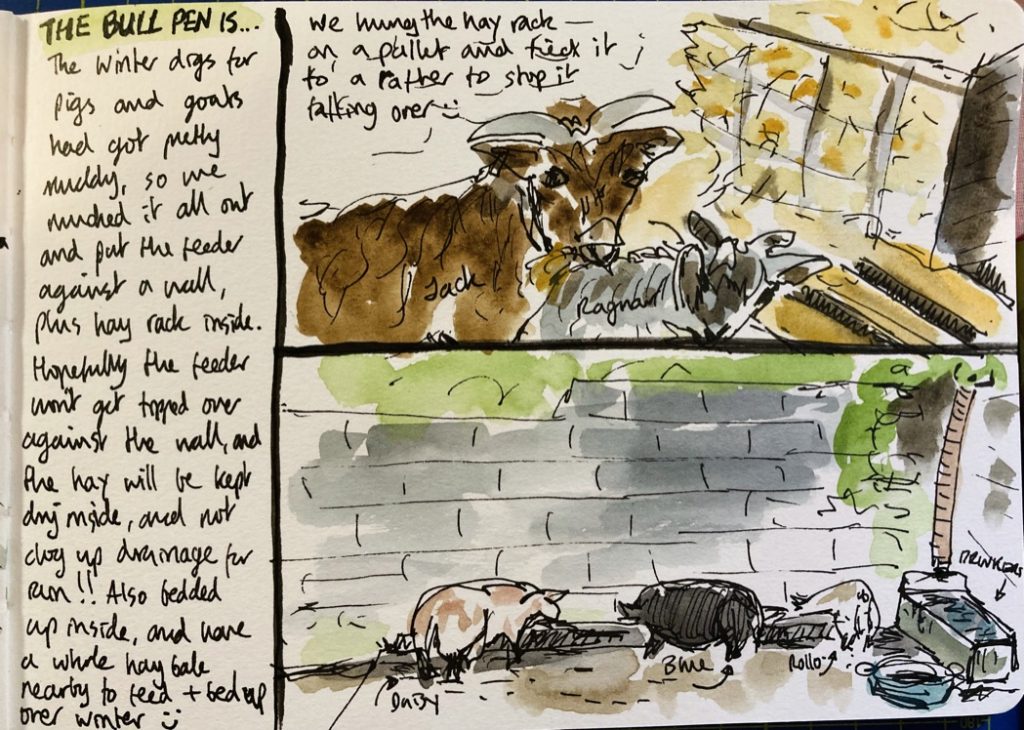 THE BULL PEN IS...
The winter digs for
pigs and goats
had got pretty
muddy, so we
mucked it all out
and put the feeder
against a wall,
plus hay rack inside.
Hopefully the feeder
won't get topped over
against the wall, and
the hay will be kept
dry inside, and not
clog up drainage for
rain!! Also bedded
up inside, and have
a whole hay bale
nearby to feed + bed up
over winter :)
We hung the hay rack —
on a pallet and it
to a rafter to stop it
falling over :)
Jack
Ragnar
DRINKERS
Daisy
Blue
Rollo
180